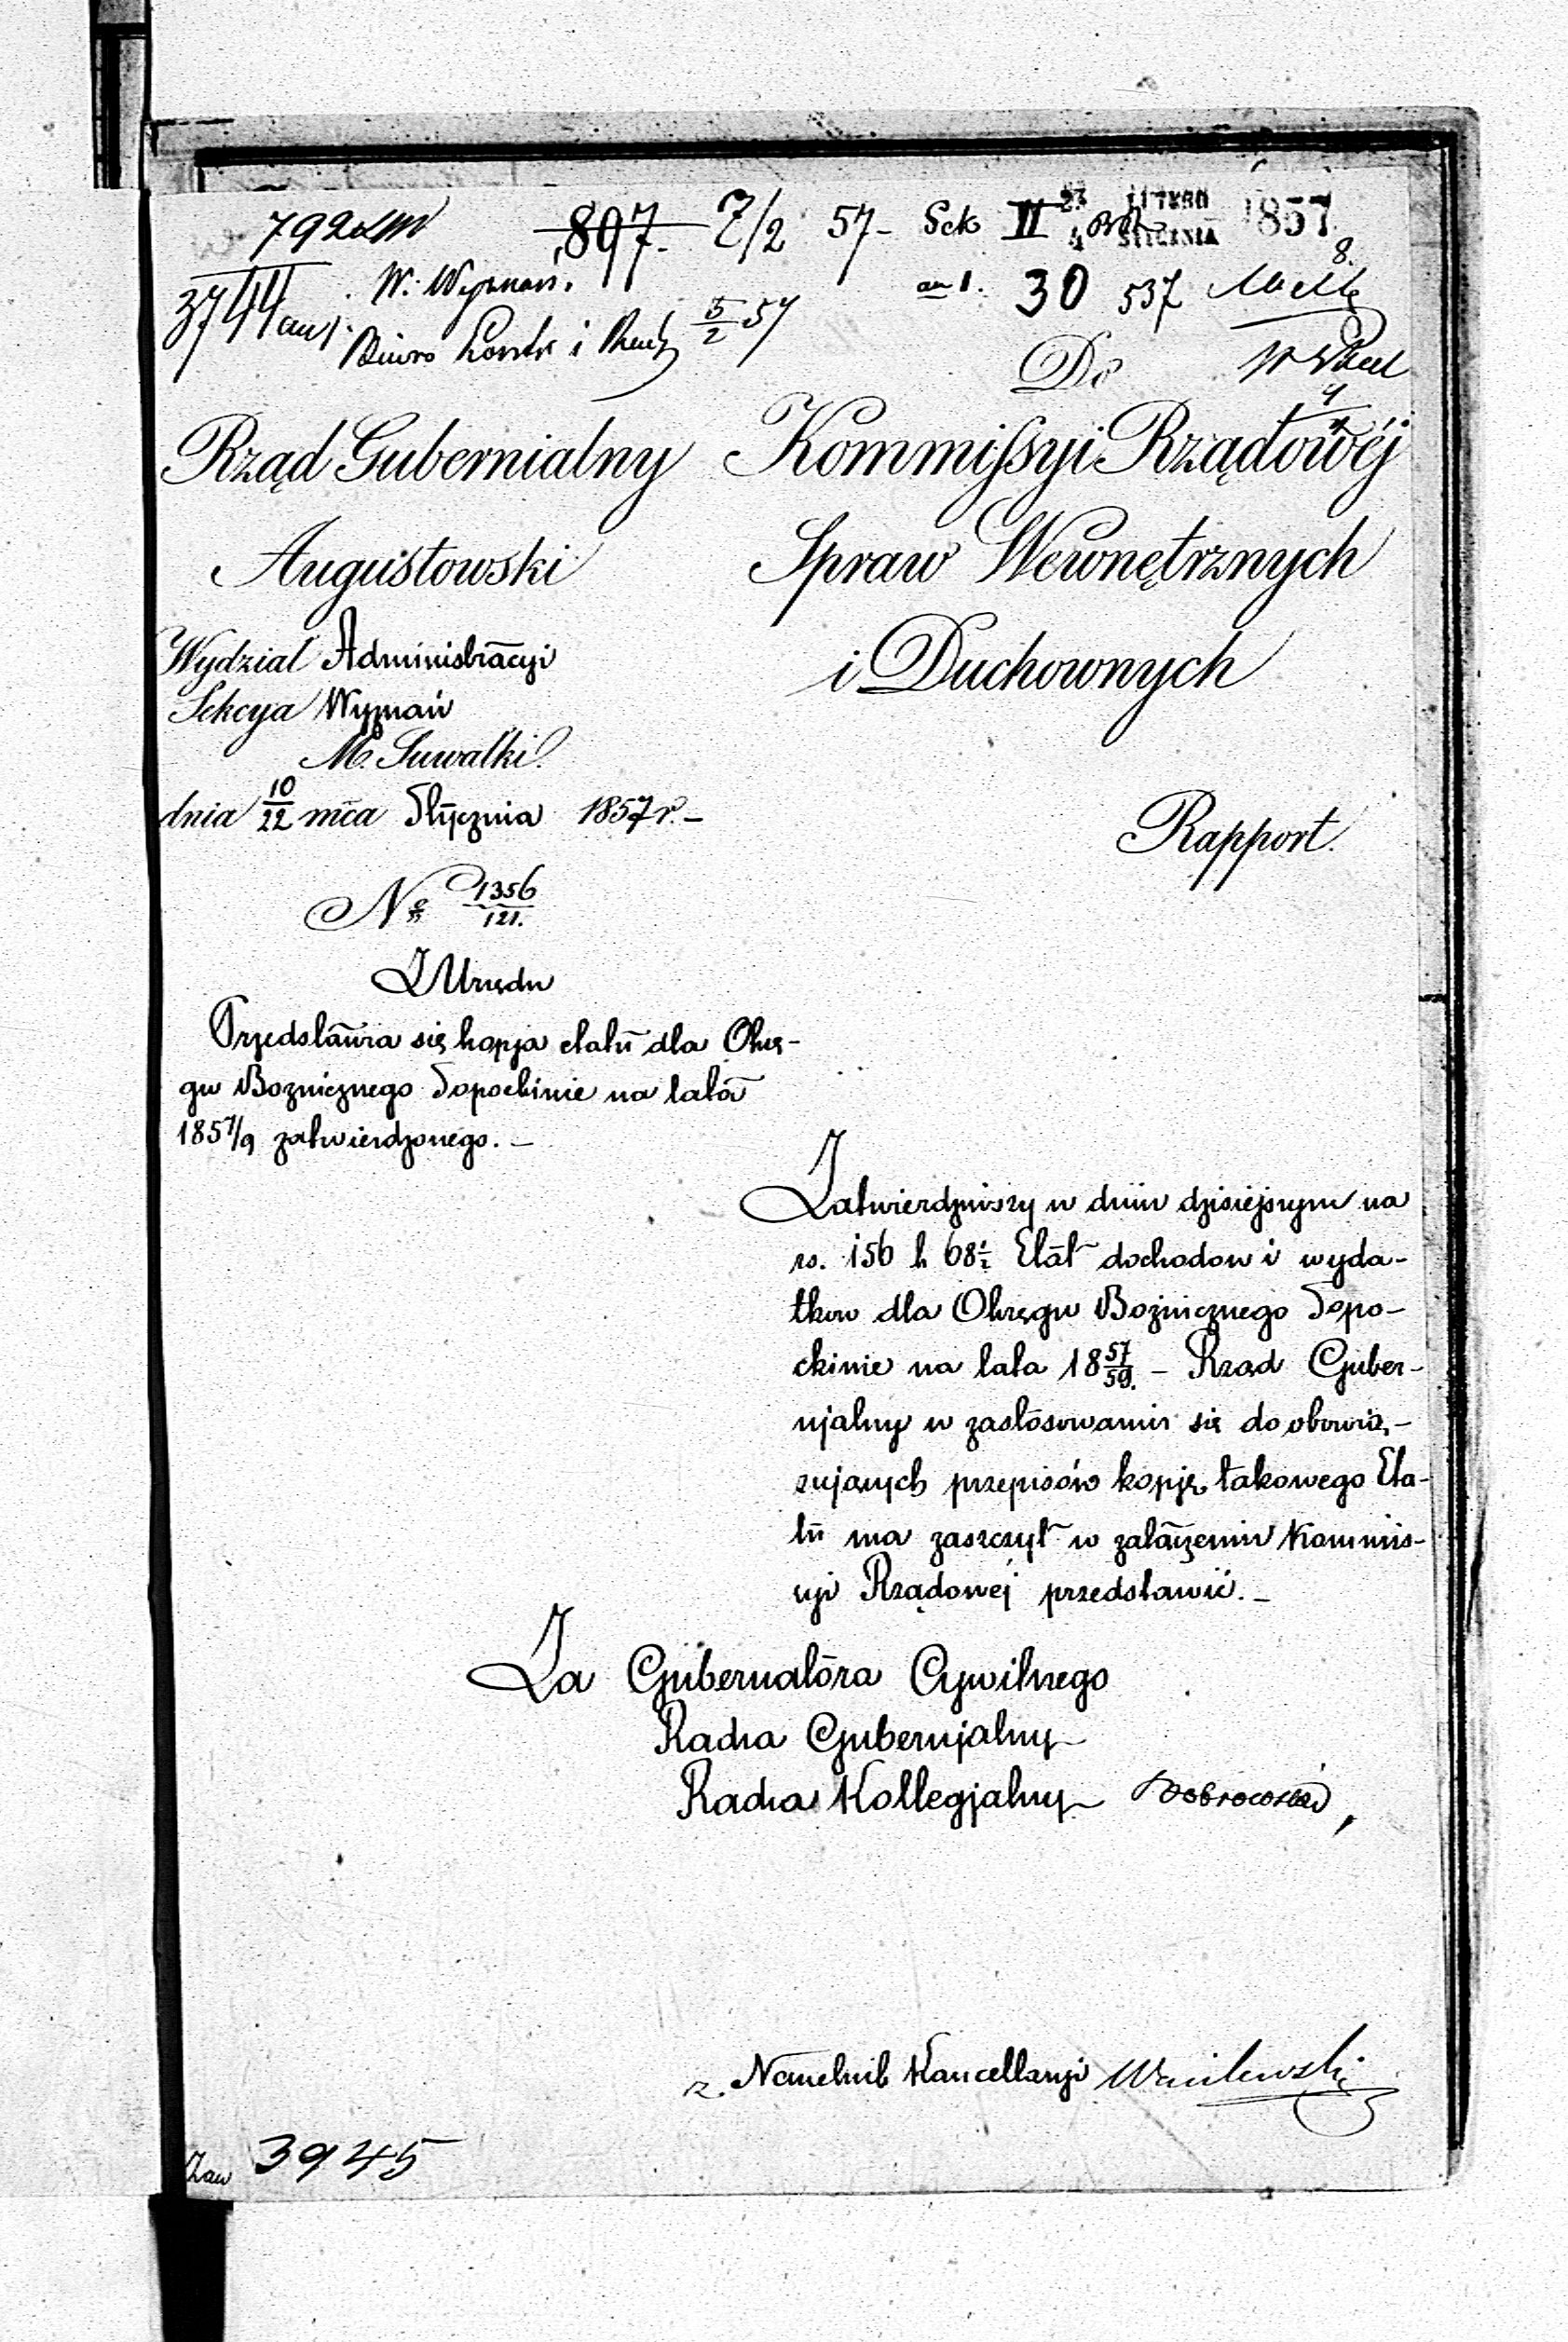 792
897 7/2 57- Sek II 23 LUTEGO 1857
4 STYCZNIA
8.
3744 W. Wyznań. an 1. 30 537
Biuro Kontr i Rach 5/2 57
Do
Rząd Gubernialny
Augustowski
Wydział Administracyi
Sekcya Wyznań
M. Suwałki.
dnia 10/22 mca Stycznia 1857 r. -
No 1356/121.
Z Urzędu
Przedstawia się kopja etatu dla Okrę-
gu Bożnicznego Sopoćkinie na lata
1857/9 zatwierdzonego. -
Kommissyi Rządowéj
Spraw Wewnętrznych
i Duchownych
Rapport.
Zatwierdziwszy w dniu dzisiejszym na
rs. 156 k 68½ Etat dochodow i wyda-
tkow dla Okręgu Bożnicznego Sopo-
ckinie na lata 18 57/59. - Rząd Guber-
njalny w zastosowaniu się do obowią-
zujących przepisów kopję takowego Eta-
tu ma zaszczyt w załączeniu Kommis-
syi Rządowej przedstawić. -
Za Gubernatora Cywilnego
Radca Gubernjalny
Radca Kollegjalny
z. Naczelnik Kancellaryi Wasilewski
3945